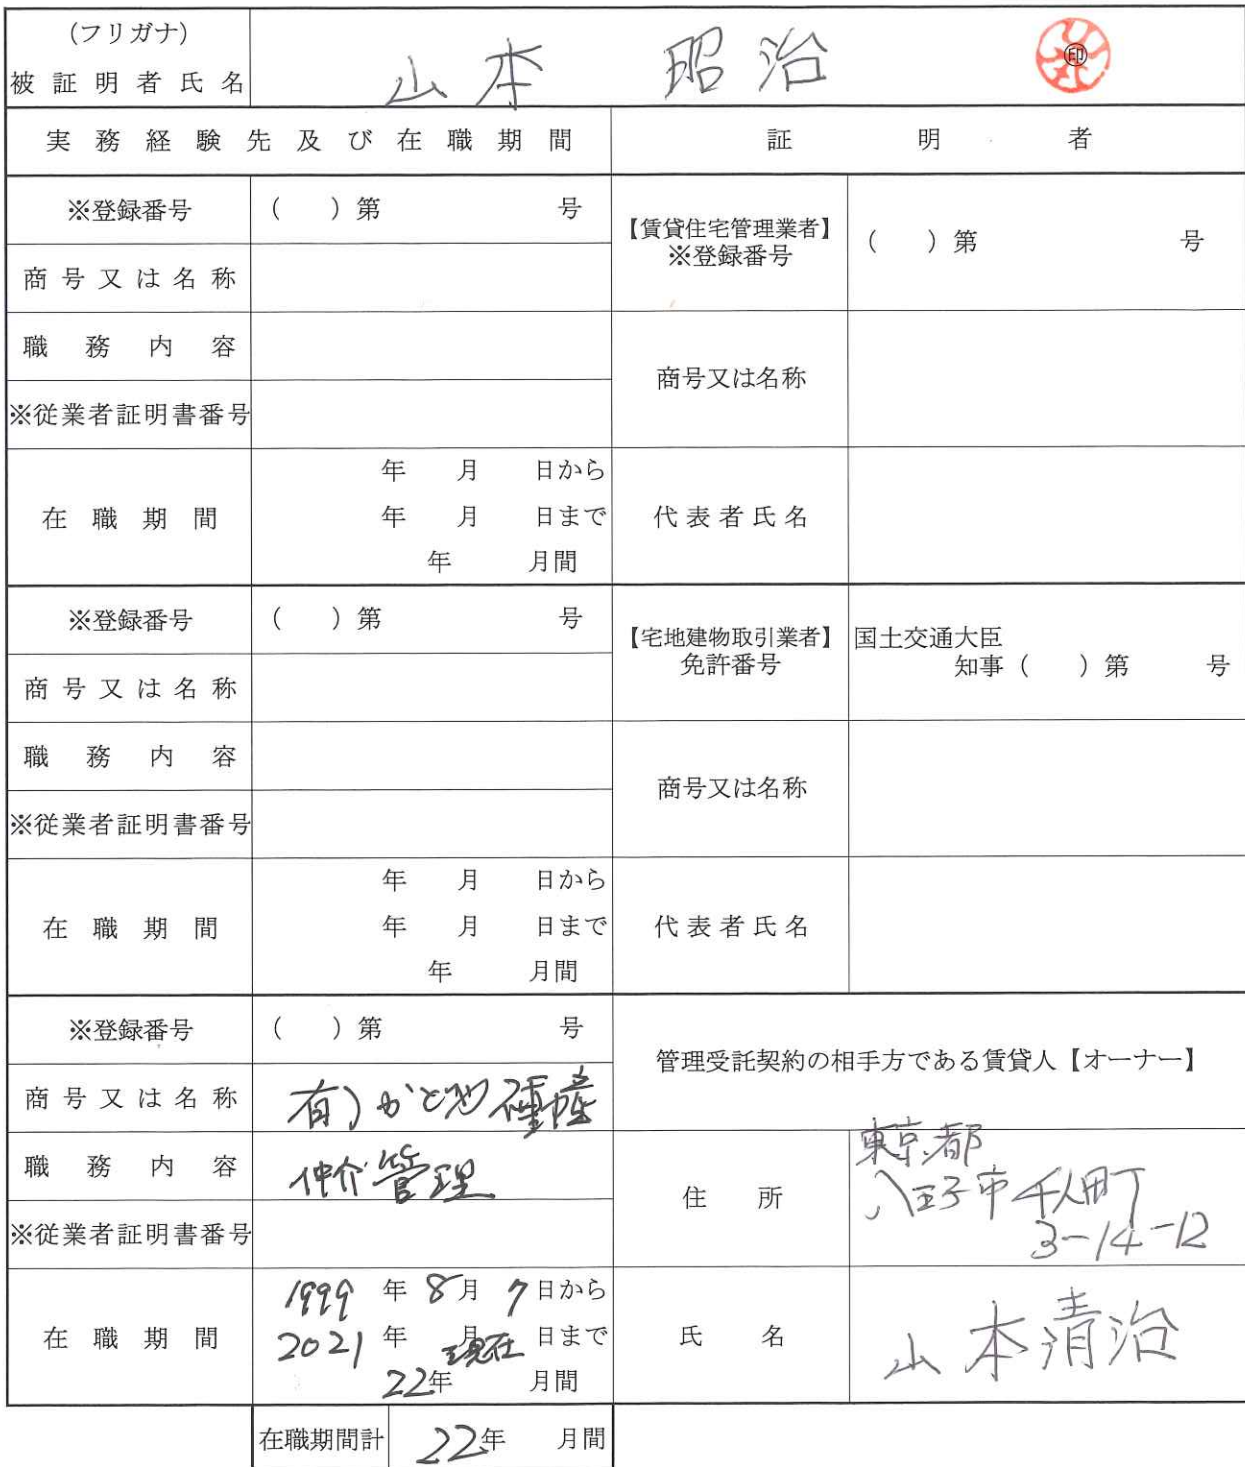 (フリガナ)
被証明者氏名 山本 昭治 ㊞
実務経験先及び在職期間 証明者
※登録番号 ( )第 号
【賃貸住宅管理業者】
※登録番号 ( )第 号
商号又は名称
職務内容
商号又は名称
※従業者証明書番号
在職期間
年 月 日から
年 月 日まで
年 月間
代表者氏名
※登録番号 ( )第 号
【宅地建物取引業者】
免許番号
国土交通大臣
知事( )第 号
商号又は名称
職務内容
商号又は名称
※従業者証明書番号
在職期間
年 月 日から
年 月 日まで
年 月間
代表者氏名
※登録番号 ( )第 号
管理受託契約の相手方である賃貸人【オーナー】
商号又は名称 有)
職務内容 仲介管理
※従業者証明書番号
住所
東京都
八王子市千人町
3-14-12
在職期間
1999年8月7日から
2021年 月現在 日まで
22年 月間
氏名 山本清治
在職期間計 22年 月間